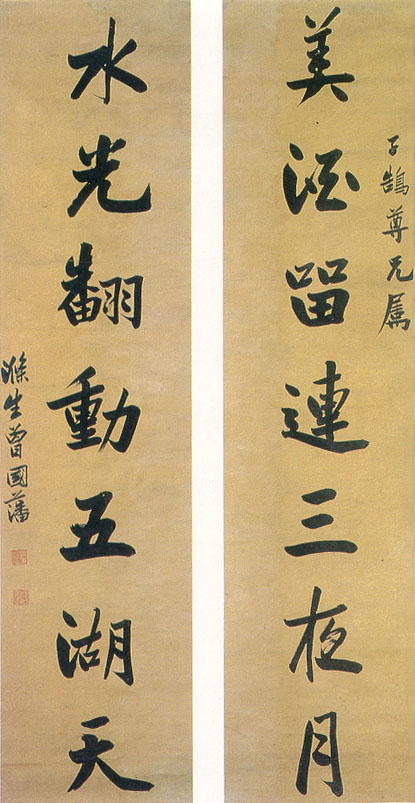 子鵠尊兄屬
美酒留連三夜月
水光翻動五湖天
滌生曾國藩